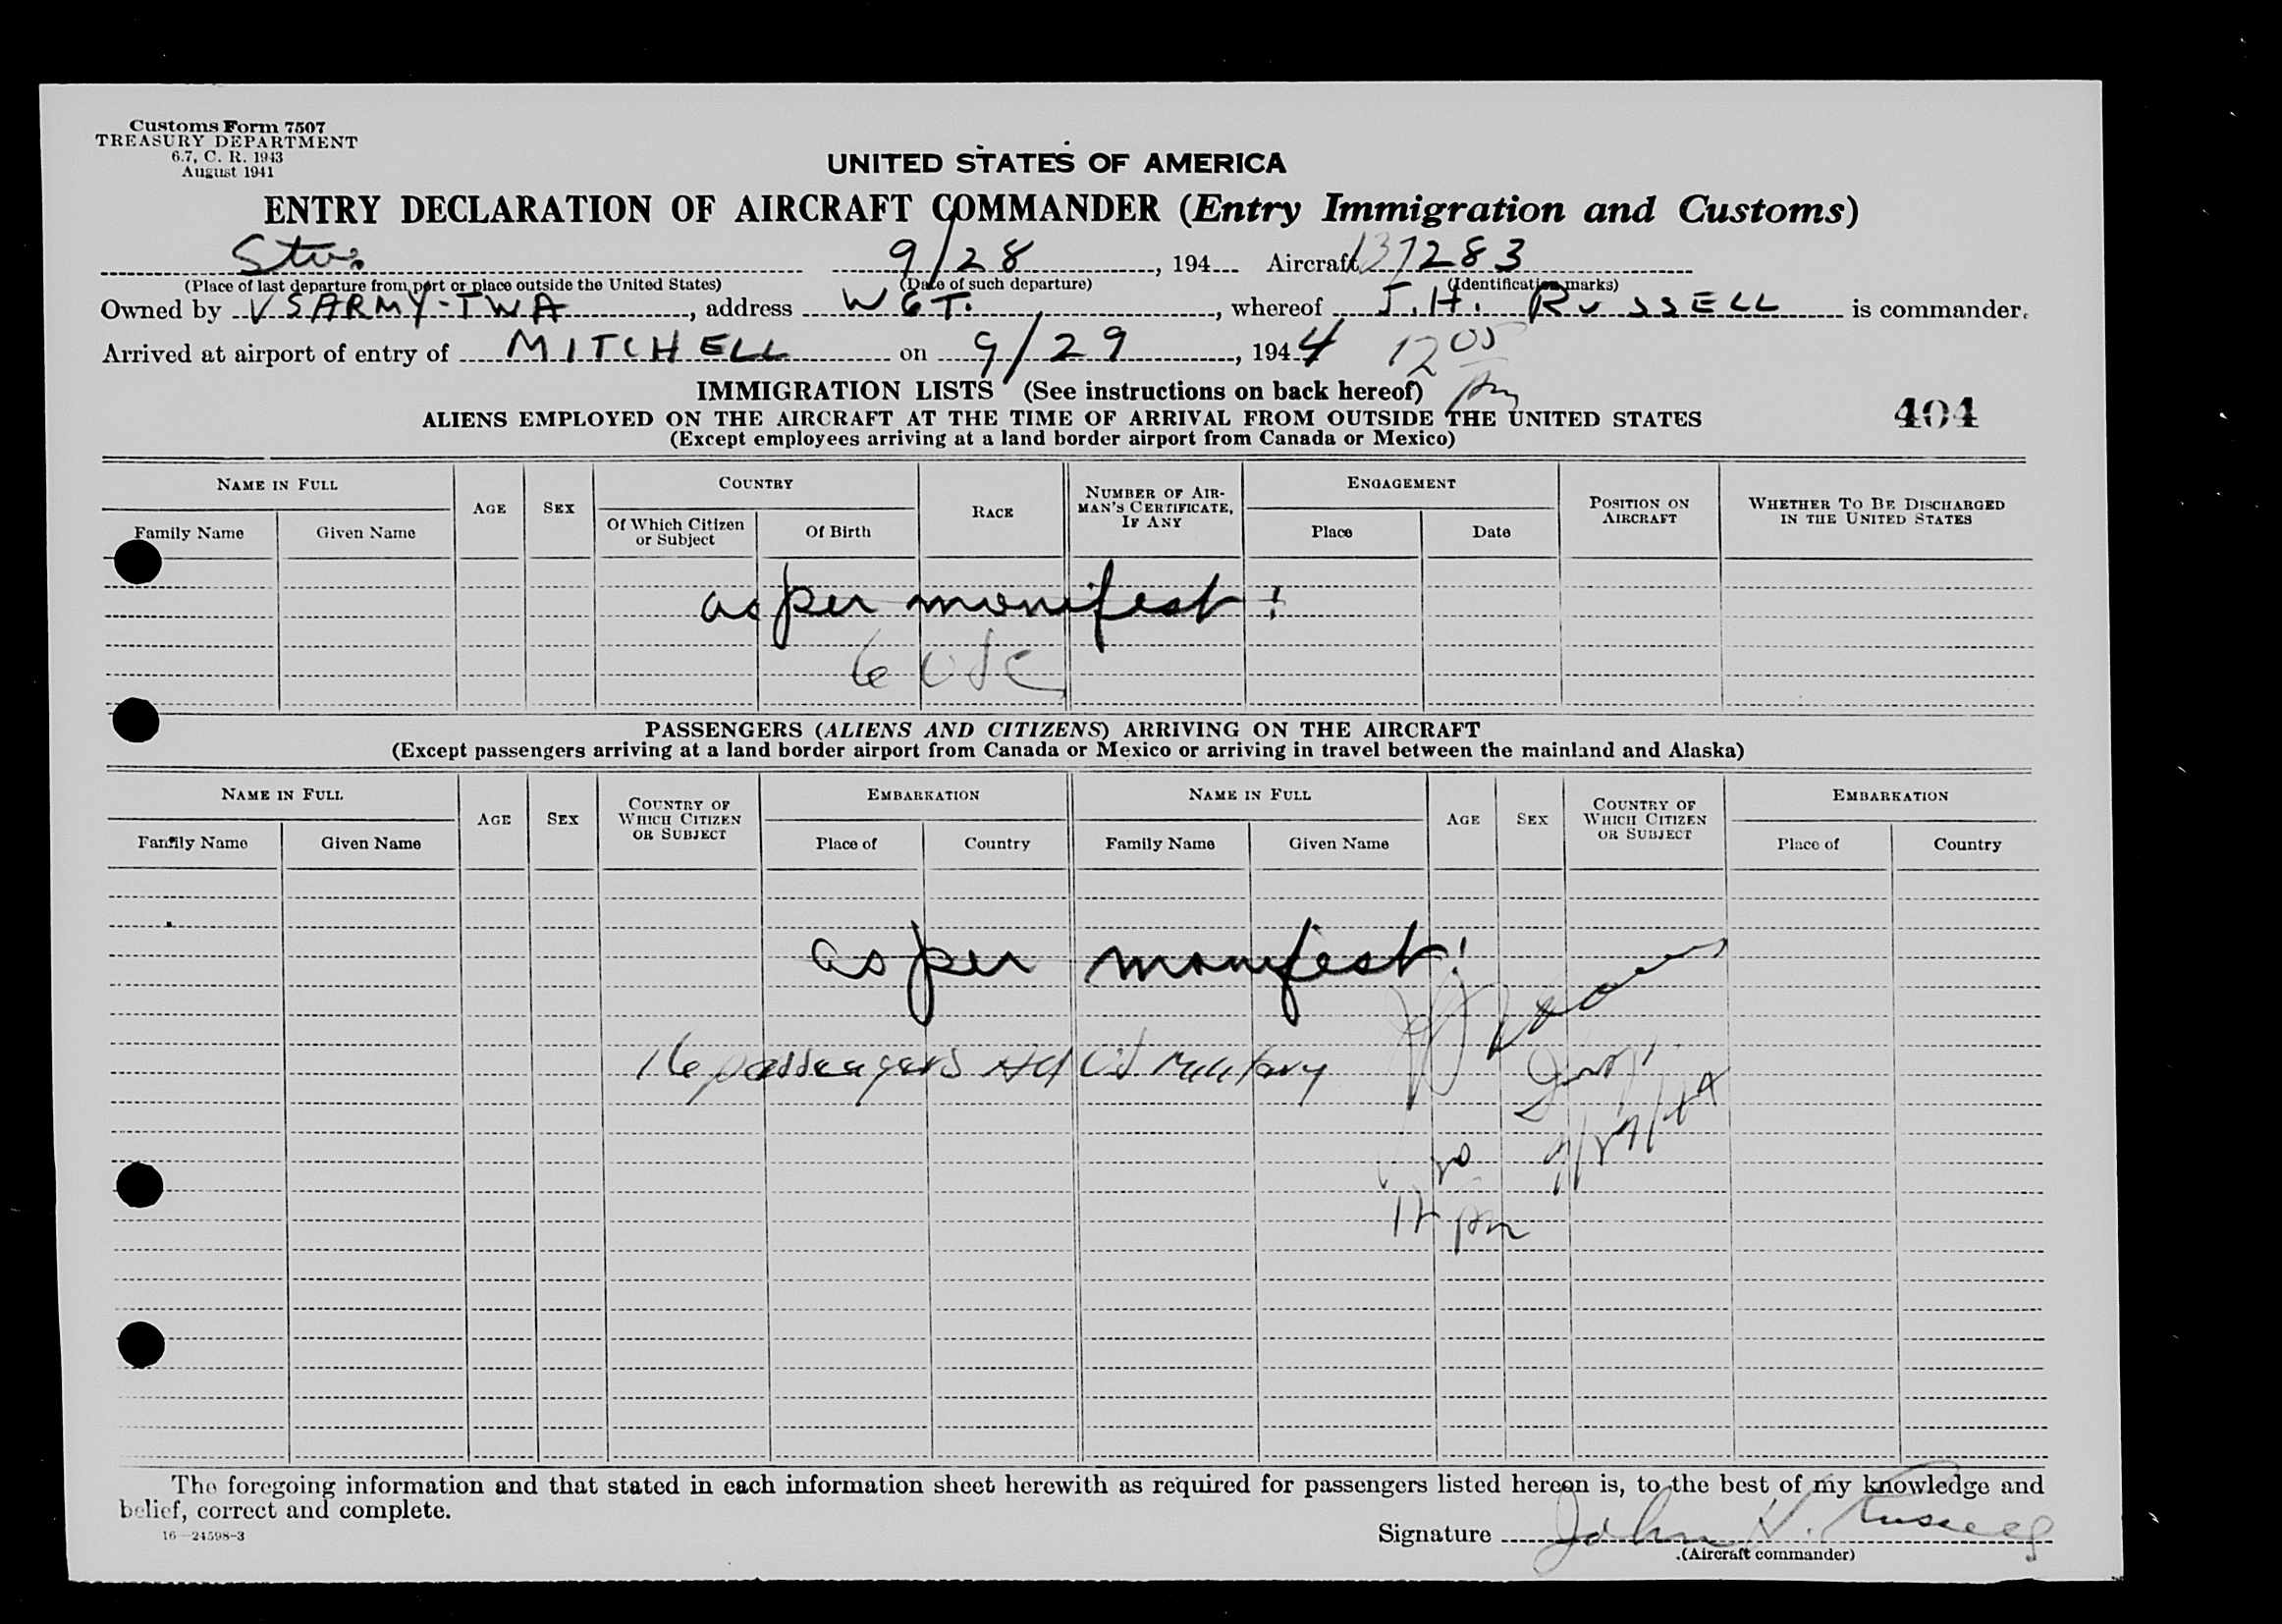 Customs Form 7507
TREASURY DEPARTMENT
6.7, C. R. 1943
August 1941
UNITED STATES OF AMERICA
ENTRY DECLARATION OF AIRCRAFT COMMANDER (Entry Immigration and Customs)
9/28, 194 Aircraft 137283
(Place of last departure from port or place outside the United States) (Date of such departure) (Identification marks)
Owned by USARMY-TWA, address WGT., whereof J.H. RUSSELL is commander.
Arrived at airport of entry of MITCHELL on 9/29, 1944 12 05
pm
IMMIGRATION LISTS (See instructions on back hereof)
ALIENS EMPLOYED ON THE AIRCRAFT AT THE TIME OF ARRIVAL FROM OUTSIDE THE UNITED STATES
404
(Except employees arriving at a land border airport from Canada or Mexico)
NAME IN FULL AGE SEX COUNTRY RACE NUMBER OF AIR-MAN'S CERTIFICATE, IF ANY ENGAGEMENT POSITION ON AIRCRAFT WHETHER TO BE DISCHARGED IN THE UNITED STATES
Family Name Given Name Of Which Citizen or Subject Of Birth Place Date
as per manifest!
6 USC
PASSENGERS (ALIENS AND CITIZENS) ARRIVING ON THE AIRCRAFT
(Except passengers arriving at a land border airport from Canada or Mexico or arriving in travel between the mainland and Alaska)
NAME IN FULL AGE SEX COUNTRY OF WHICH CITIZEN OR SUBJECT EMBARKATION NAME IN FULL AGE SEX COUNTRY OF WHICH CITIZEN OR SUBJECT EMBARKATION
Family Name Given Name Place of Country Family Name Given Name Place of Country
as per manifest!
16 passengers All US Military
9/29/44
12 pm
The foregoing information and that stated in each information sheet herewith as required for passengers listed hereon is, to the best of my knowledge and
belief, correct and complete.
16—24598-3
Signature John H. Russell
(Aircraft commander)